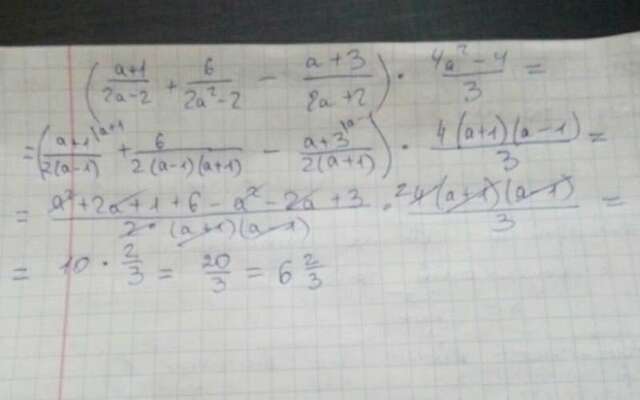 (a+1/2a-2 + 6/2a²-2 - a+3/2a+2) · 4a²-4/3 =
=(a+1\a+1/2(a-1) + 6/2(a-1)(a+1) - a+3\a-1/2(a+1)) · 4(a+1)(a-1)/3 =
= a²+2a+1+6-a²-2a+3/2·(a+1)(a-1) · ²4(a+1)(a-1)/3 =
= 10 · 2/3 = 20/3 = 6 2/3